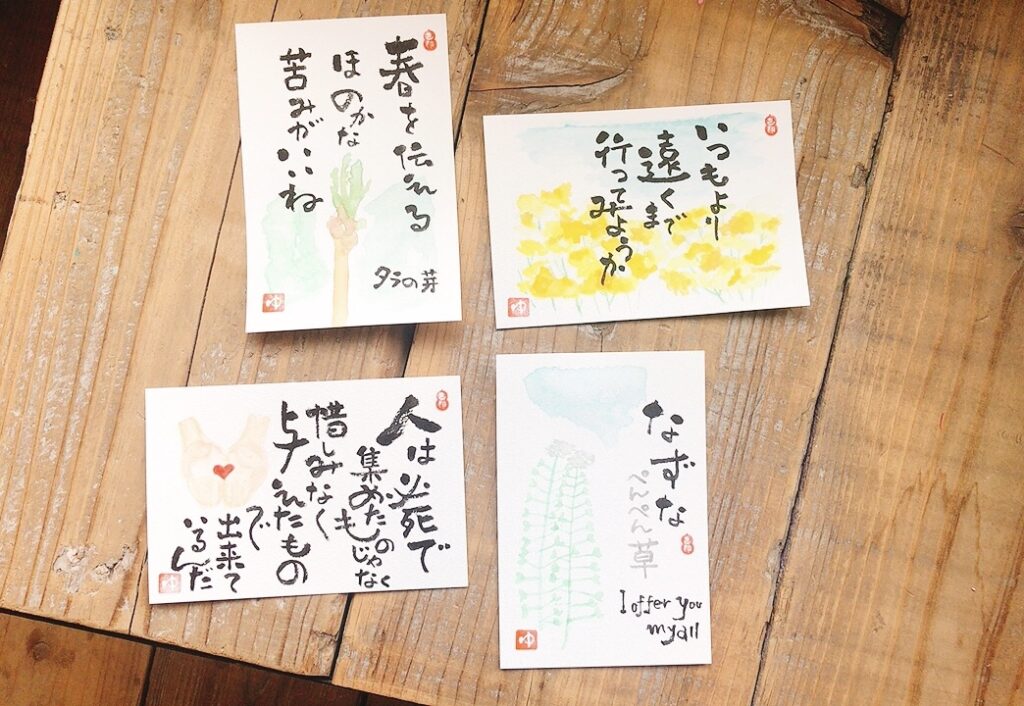 春を伝える
ほのかな
苦みがいいね
タラの芽
ゆ
いつもより
遠くまで
行ってみようか
ゆ
人は必死で
集めたもの
じゃなく
惜しみなく
与えたもの
で
出来て
いるんだ
ゆ
なずな
ぺんぺん草
I offer you
my all
ゆ